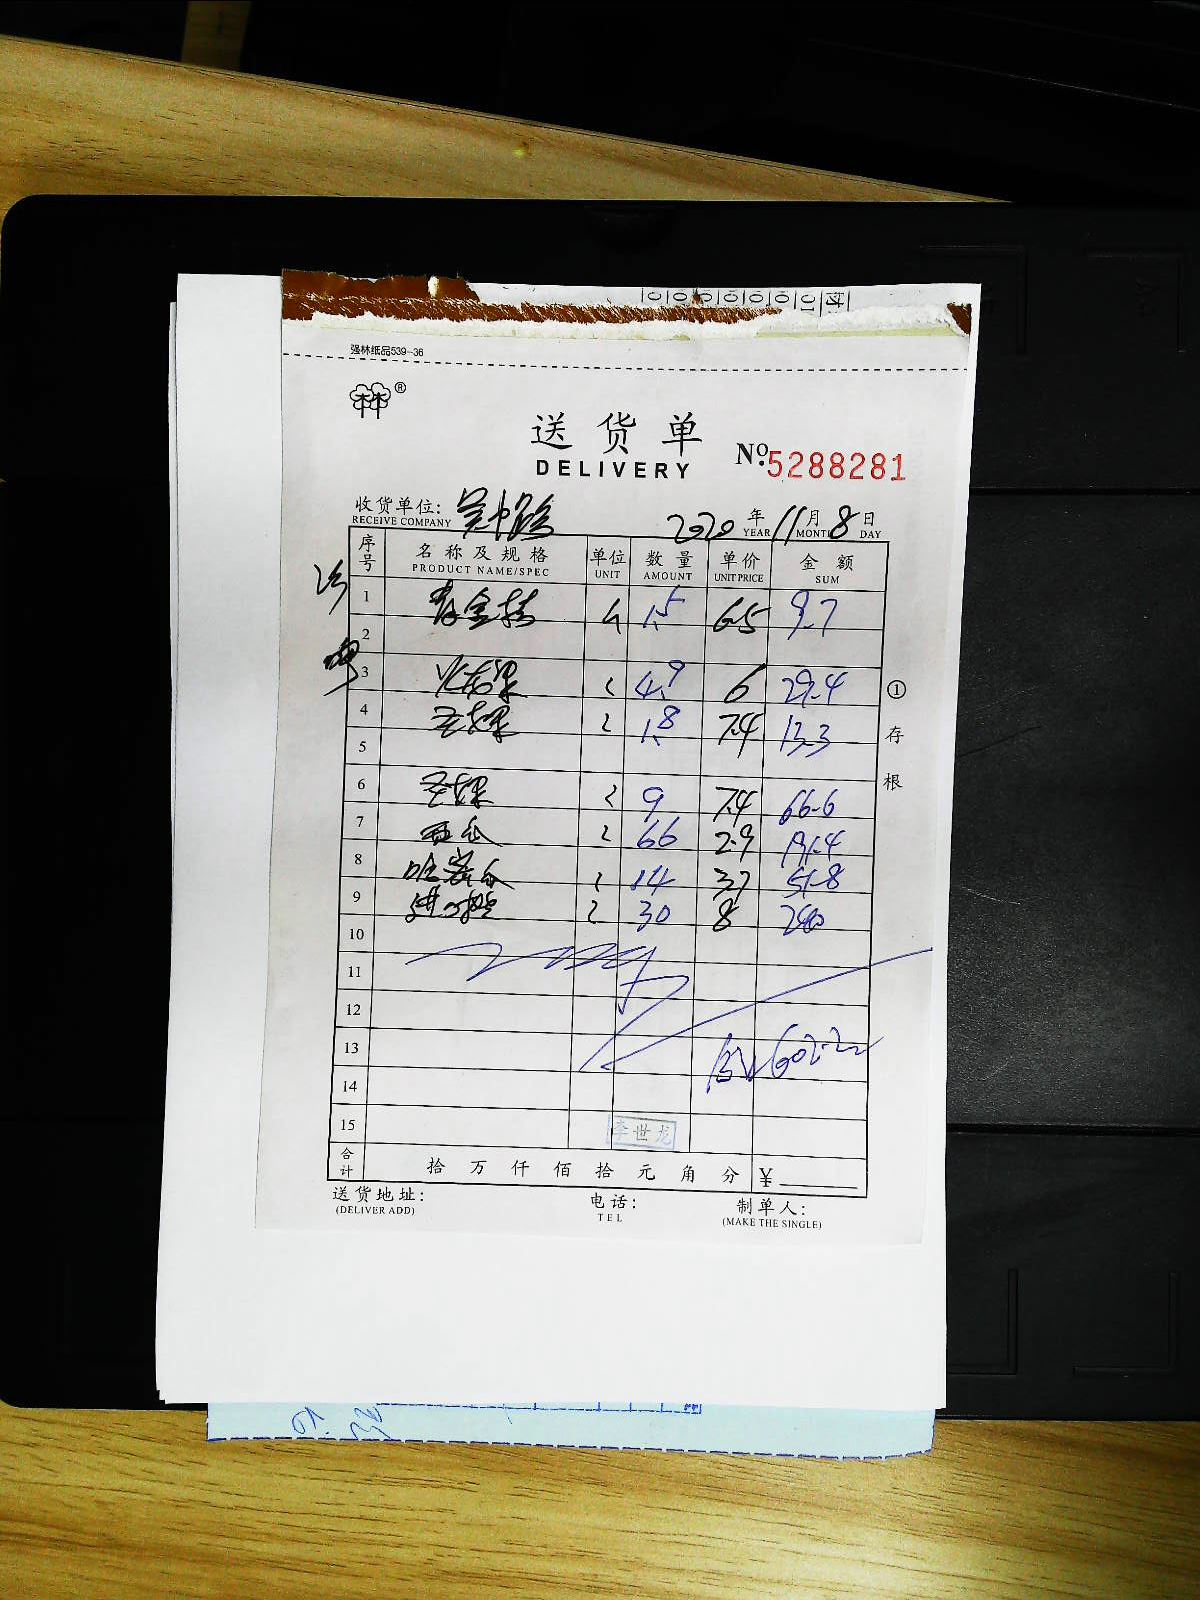 强林纸品539-36
送货单
DELIVERY
No.5288281
收货单位: 吴中路
RECEIVE COMPANY
2020年11月8日
YEAR MONTH DAY
序号 名称及规格 单位 数量 单价 金额
PRODUCT NAME/SPEC UNIT AMOUNT UNIT PRICE SUM
1 1.5 6.5 9.7
2
3 火龙果 4.9 6 29.4
4 1.8 7.4 13.3
5
6 9 7.4 66.6
7 西瓜 66 2.9 191.4
8 哈密瓜 14 3.7 51.8
9 30 8 240
10
11
12
13 602.2
14
15 李世龙
合计 拾万仟佰拾元角分 ¥
送货地址: 电话: 制单人:
(DELIVER ADD) TEL (MAKE THE SINGLE)
①存根